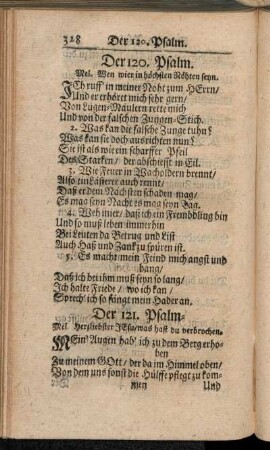 328 Der 120. Psalm.
Der 120. Psalm.
Mel. Wen wier in höchsten Nöhten seyn.
ICh ruff' in meiner Noht zum HErrn/
Und er erhöret mich sehr gern/
Von Lügen-Mäulern rette mich
Und von der falschen Zungen-Stich.
2. Was kan die falsche Zunge tuhn?
Was kan sie doch ausrichten nun?
Sie ist als wie ein scharffer Pfeil
Des Starken/ der abschiesst in Eil.
3. Wie Feuer in Wacholdern brennt/
Also ein Lästerer auch rennt/
Daß er dem Nächsten schaden mag/
Es mag seyn Nacht es mag seyn Tag.
4. Weh mier/ daß ich ein Frembdling bin
Und so muß leben immerhin
Bei Leuten da Betrug und List
Auch Haß und Zank zu spüren ist.
5. Es macht mein Feind mich angst und
bang/
Daß ich bei ihm muß seyn so lang/
Ich halte Friede/ wo ich kan/
Sprech' ich so fängt mein Hader an.
Der 121. Psalm.
Mel. Herzliebster JEsu/ was hast du verbrochen.
MEin' Augen hab' ich zu dem Berg erho-
ben
Zu meinem GOtt/ der da im Himmel oben/
Von dem uns sonst die Hülffe pflegt zu kom-
men Und